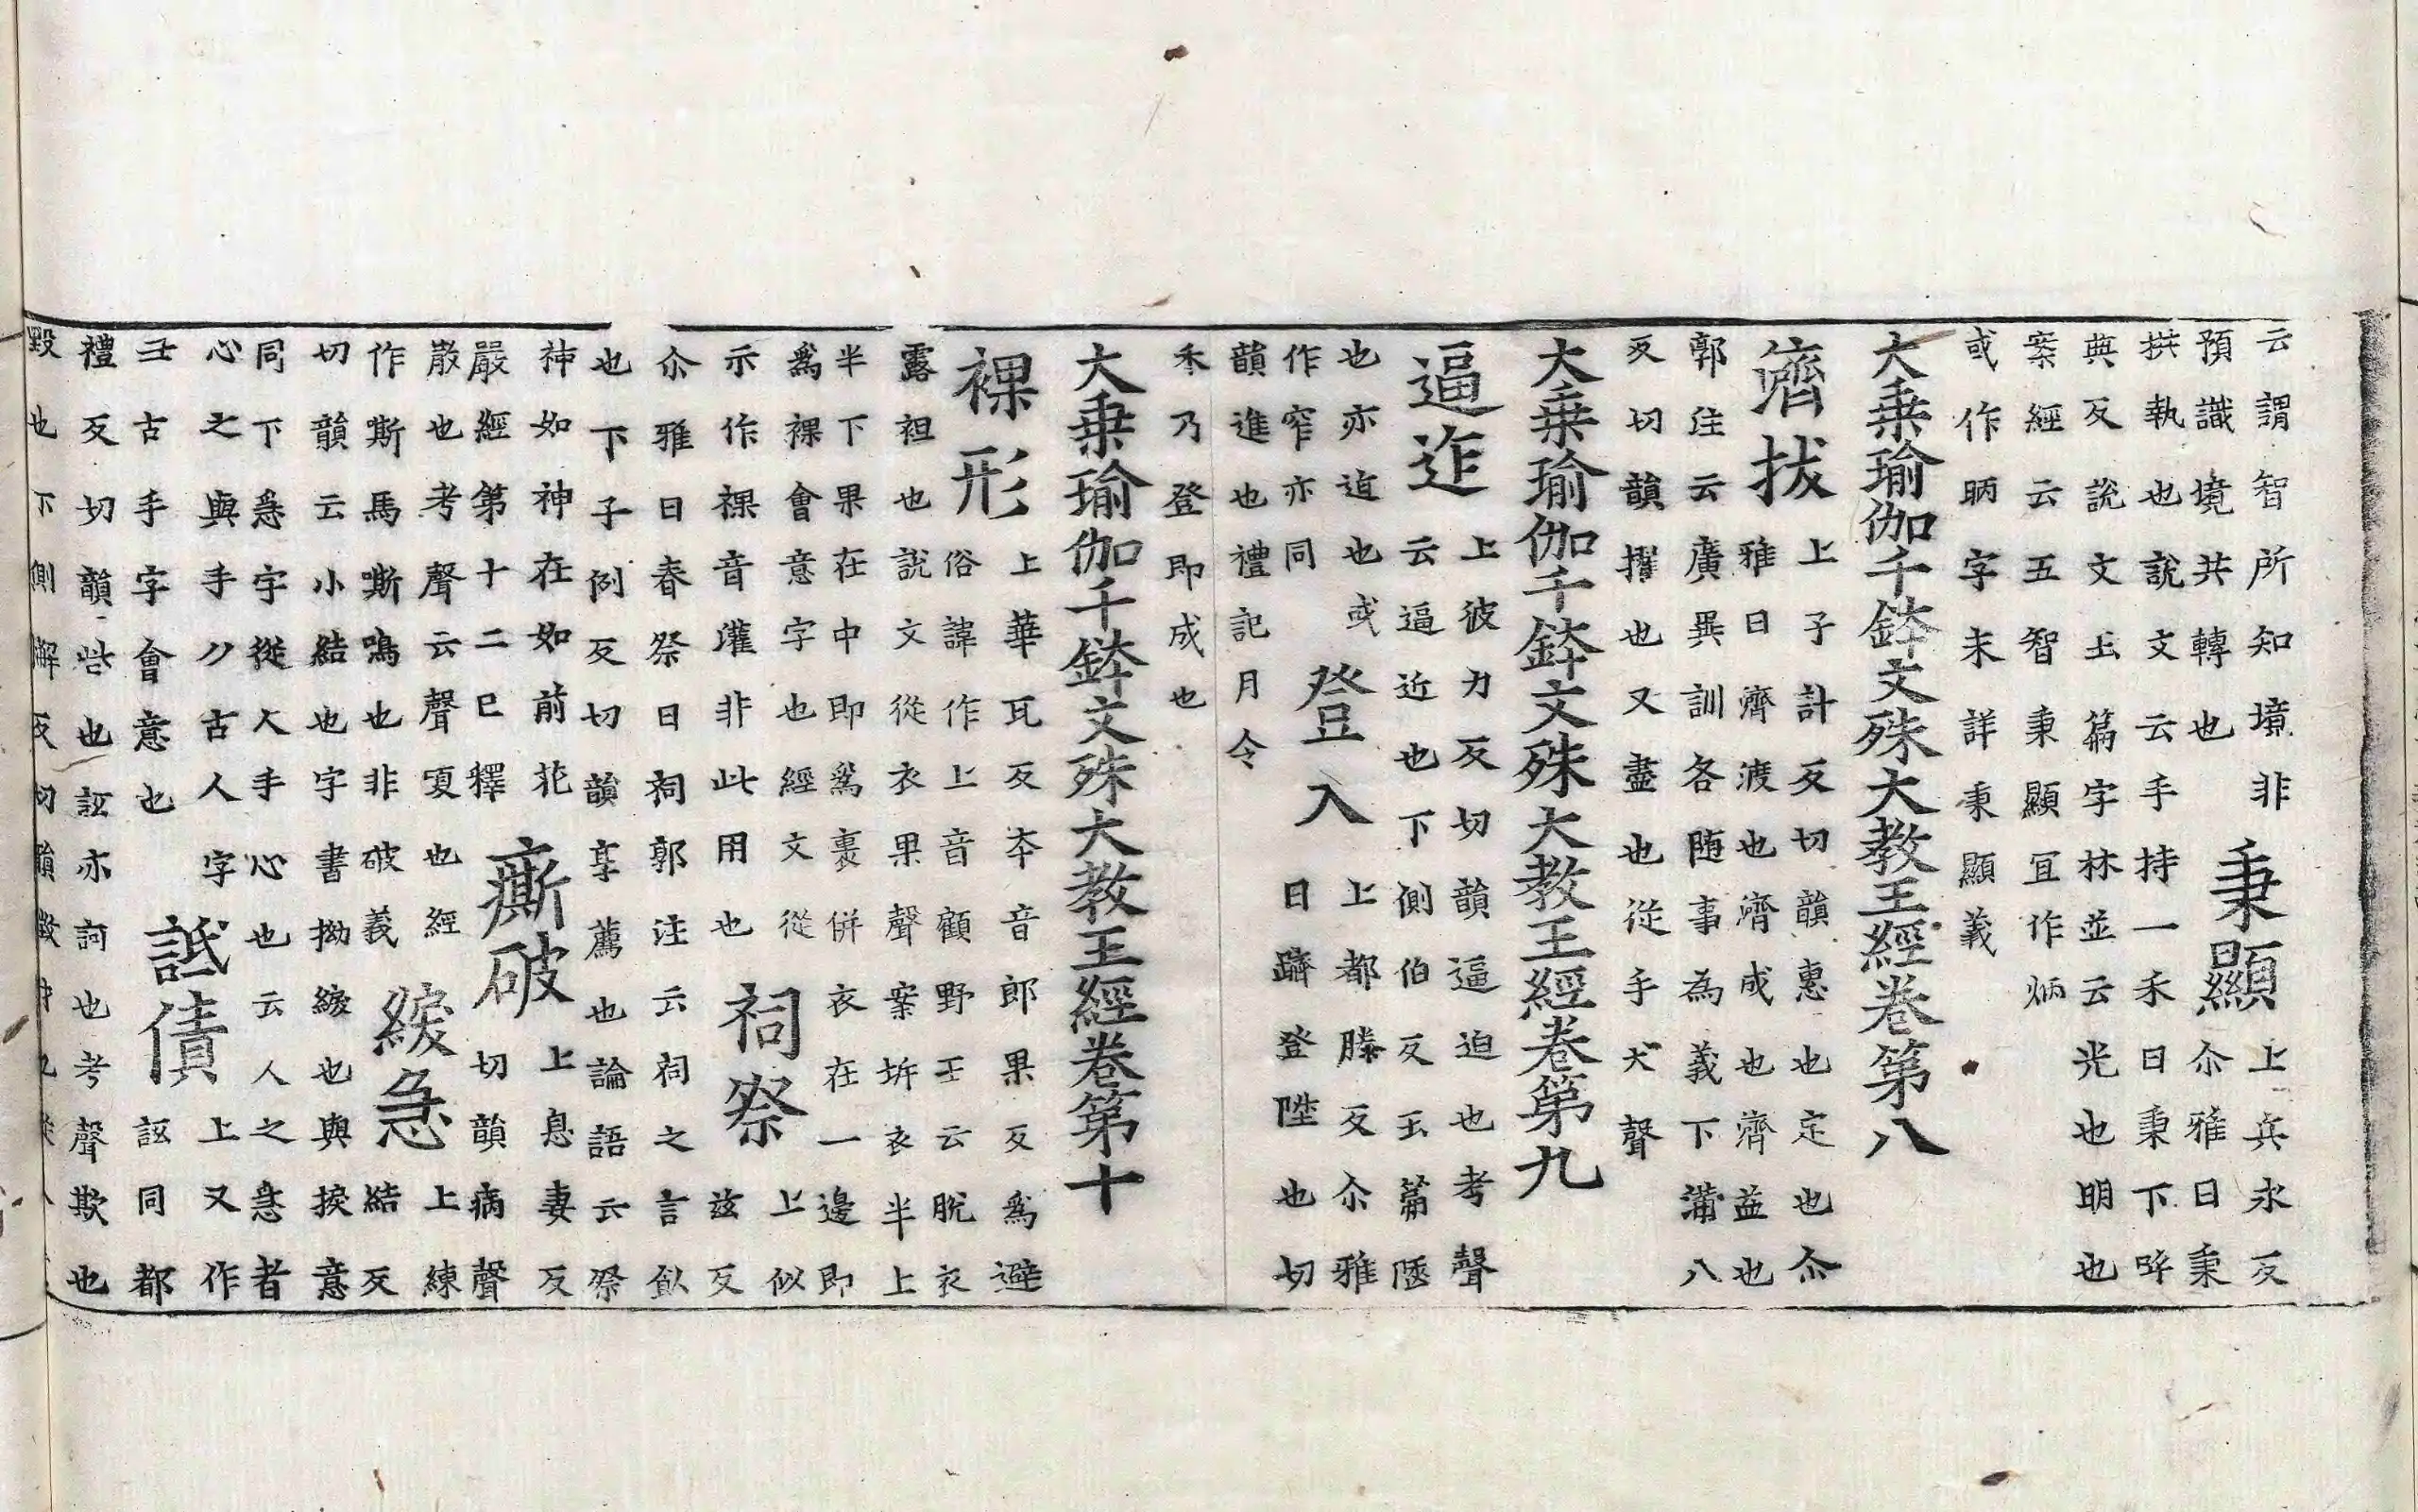 云謂智所知境非
預識境共轉也
秉顯
上兵永反
尒雅曰秉
拱執也說文云手持一禾曰秉下呼
典反說文玉篇字林並云光也明也
案經云五智秉顯冝作炳
或作昞字未詳秉顯義
大乗瑜伽千鉢文殊大教王經卷第八
濟拔
上子計反切韻惠也定也尒
雅曰濟渡也濟成也濟益也
郭注云廣異訓各随事為義下蒲八
反切韻擢也又盡也從手犮聲
大乗瑜伽千鉢文殊大教王經卷第九
逼迮
上彼力反切韻逼迫也考聲
云逼近也下側伯反玉篇陿
也亦迫也或
作窄亦同
登入
上都滕反尒雅
曰躋登陞也切
韻進也禮記月令
禾乃登即成也
大乗瑜伽千鉢文殊大教王經卷第十
裸形
上華瓦反夲音郎果反爲避
俗諱作上音顧野王云脫衣
露袒也說文從衣果聲案坼衣半上
半下果在中即爲裹併衣在一邊即
爲裸會意字也經文從
示作祼音灌非此用也
祠祭
上似
兹反
尒雅曰春祭曰祠郭注云祠之言飤
也下子例反切韻享薦也論語云祭
神如神在如前花
嚴經第十二巳釋
㾷破
上息妻反
切韻病聲
散也考聲云聲嗄也經
作嘶馬嘶鳴也非破義
綟急
上練
結反
切韻云小結也字書拗綟也與捩意
同下急字從人手心也云人之急者
心之與手刀古人字
手古手字會意也
詆債
上又作
詆同都
禮反切韻呰也詆亦訶也考聲欺也
毀也下側懈反切韻徵財也從人